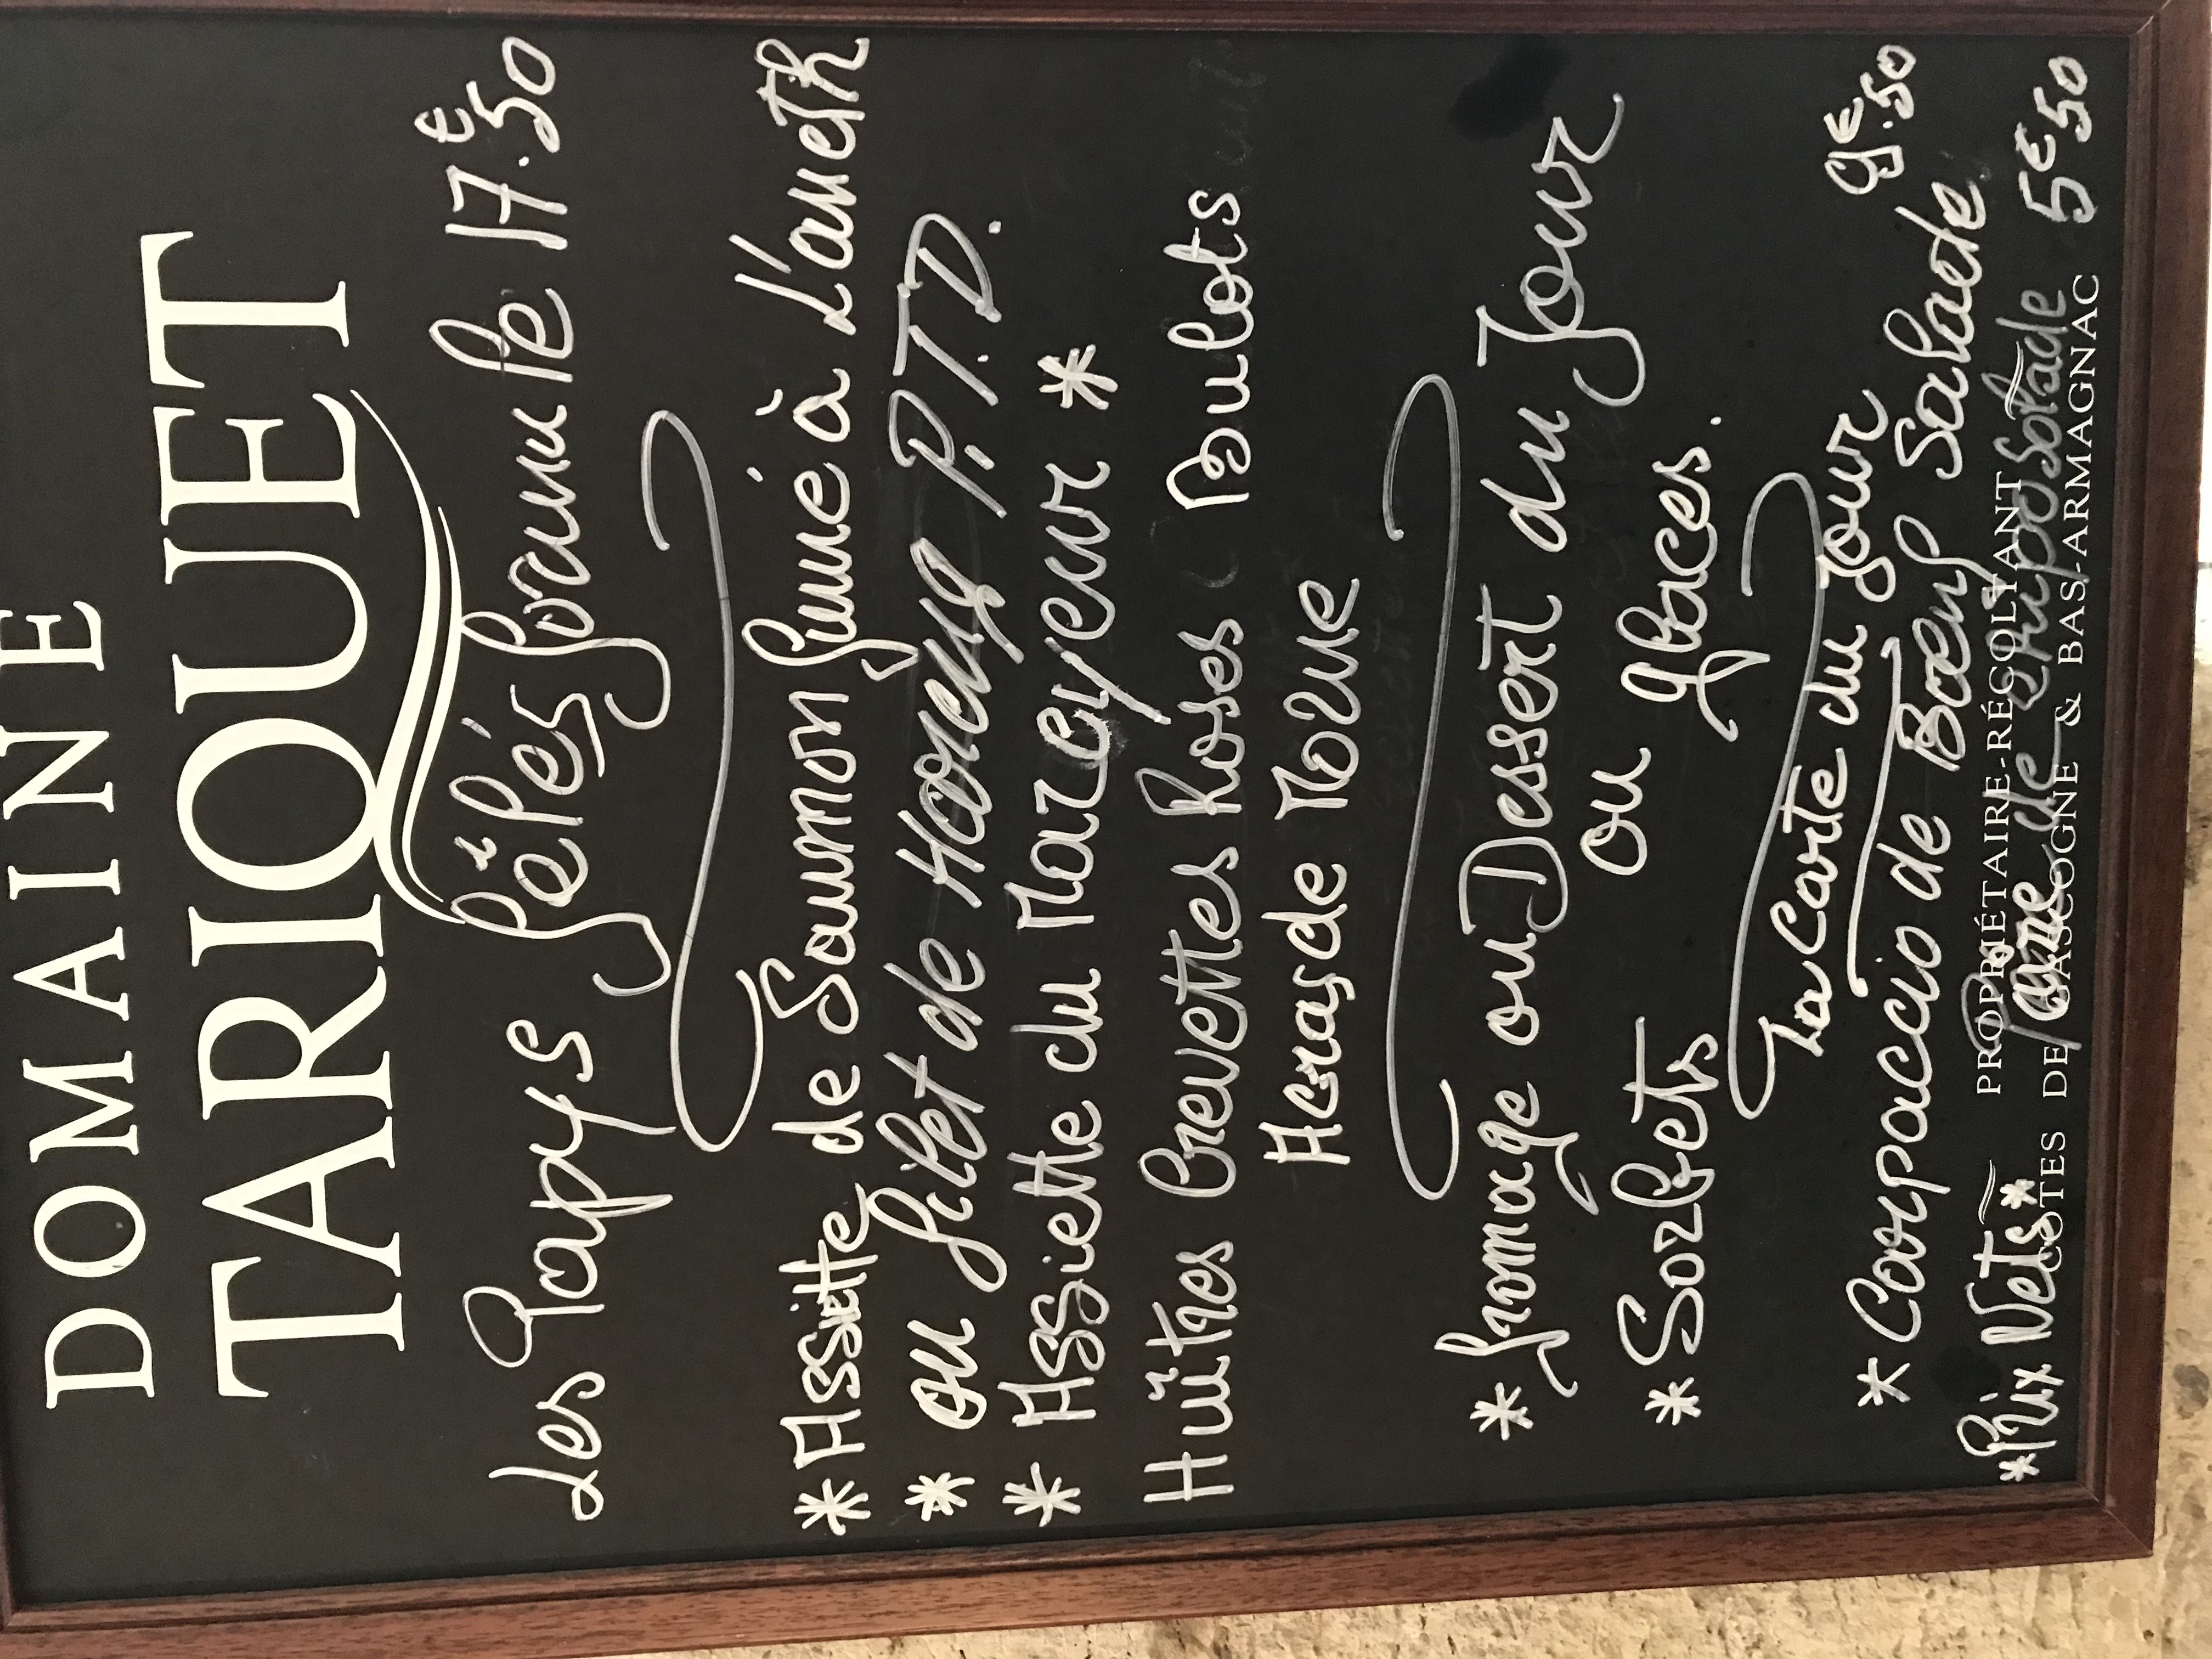 DOMAINE
TARIQUET
Les Papys fêlés formule 17€.50
*Assiette de Saumon fumé à L'aneth
* ou filet de Hareng P.T.D.
* Assiette du Mareyeur *
Huîtres Crevettes Roses Bulots
Acras de Morue
* fromage ou Dessert du Jour
* Sorbets ou glaces.
La Carte du Jour
* Carpaccio de Bœuf Salade 9€.50
PROPRIÉTAIRE-RÉCOLTANT
*Prix Nets* de chipo Salade 5€50
CÔTES DE GASCOGNE & BAS-ARMAGNAC